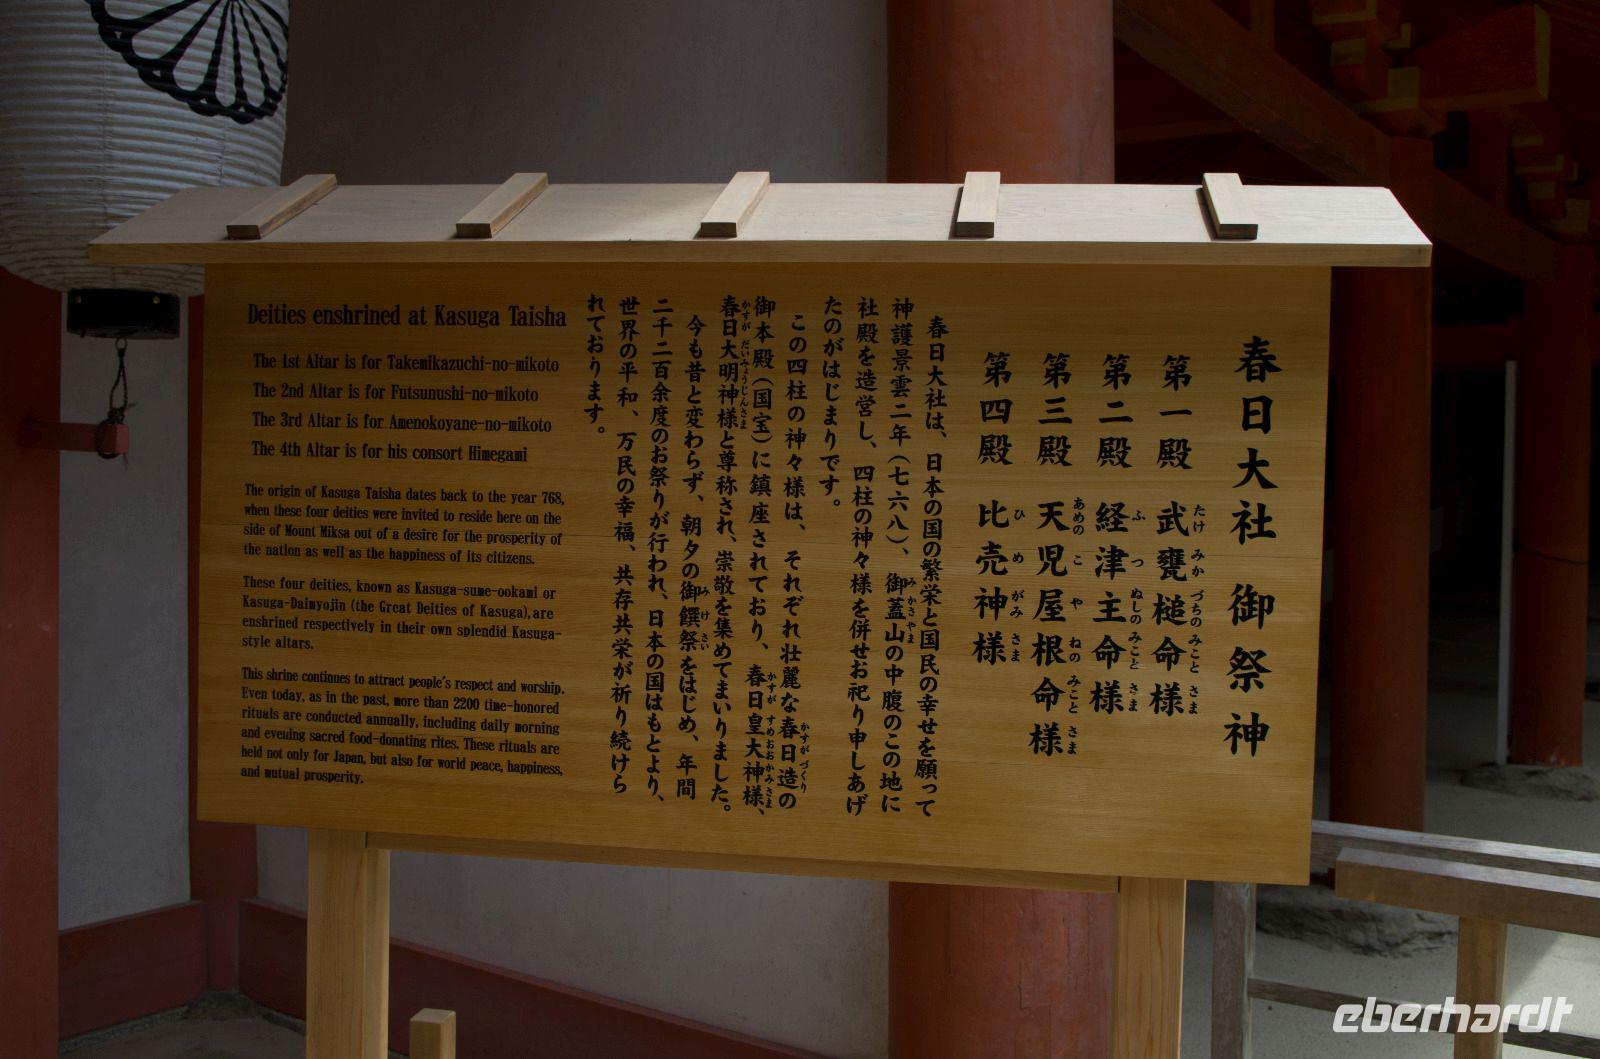 春日大社 御祭神
第一殿 武甕槌命様
たけ みか づちの みこと さま
第二殿 経津主命様
ふ つ ぬしの みこと さま
第三殿 天児屋根命様
あめの こ や ねの みこと さま
第四殿 比売神様
ひ め がみ さま
春日大社は、日本の国の繁栄と国民の幸せを願って
神護景雲二年(七六八)、御蓋山の中腹のこの地に
みかさやま
社殿を造営し、四柱の神々様を併せお祀り申しあげ
たのがはじまりです。
この四柱の神々様は、それぞれ壮麗な春日造の
かすがづくり
御本殿(国宝)に鎮座されており、春日皇大神様、
かすが すめおおかみさま
春日大明神様と尊称され、崇敬を集めてまいりました。
かすが だいみょうじんさま
今も昔と変わらず、朝夕の御饌祭をはじめ、年間
みけさい
二千二百余度のお祭りが行われ、日本の国はもとより、
世界の平和、万民の幸福、共存共栄が祈り続けら
れております。
Deities enshrined at Kasuga Taisha
The 1st Altar is for Takemikazuchi-no-mikoto
The 2nd Altar is for Futsunushi-no-mikoto
The 3rd Altar is for Amenokoyane-no-mikoto
The 4th Altar is for his consort Himegami
The origin of Kasuga Taisha dates back to the year 768,
when these four deities were invited to reside here on the
side of Mount Miksa out of a desire for the prosperity of
the nation as well as the happiness of its citizens.
These four deities, known as Kasuga-sume-ookami or
Kasuga-Daimyojin (the Great Deities of Kasuga), are
enshrined respectively in their own splendid Kasuga-
style altars.
This shrine continues to attract people's respect and worship.
Even today, as in the past, more than 2200 time-honored
rituals are conducted annually, including daily morning
and evening sacred food-donating rites. These rituals are
held not only for Japan, but also for world peace, happiness,
and mutual prosperity.
eberhardt